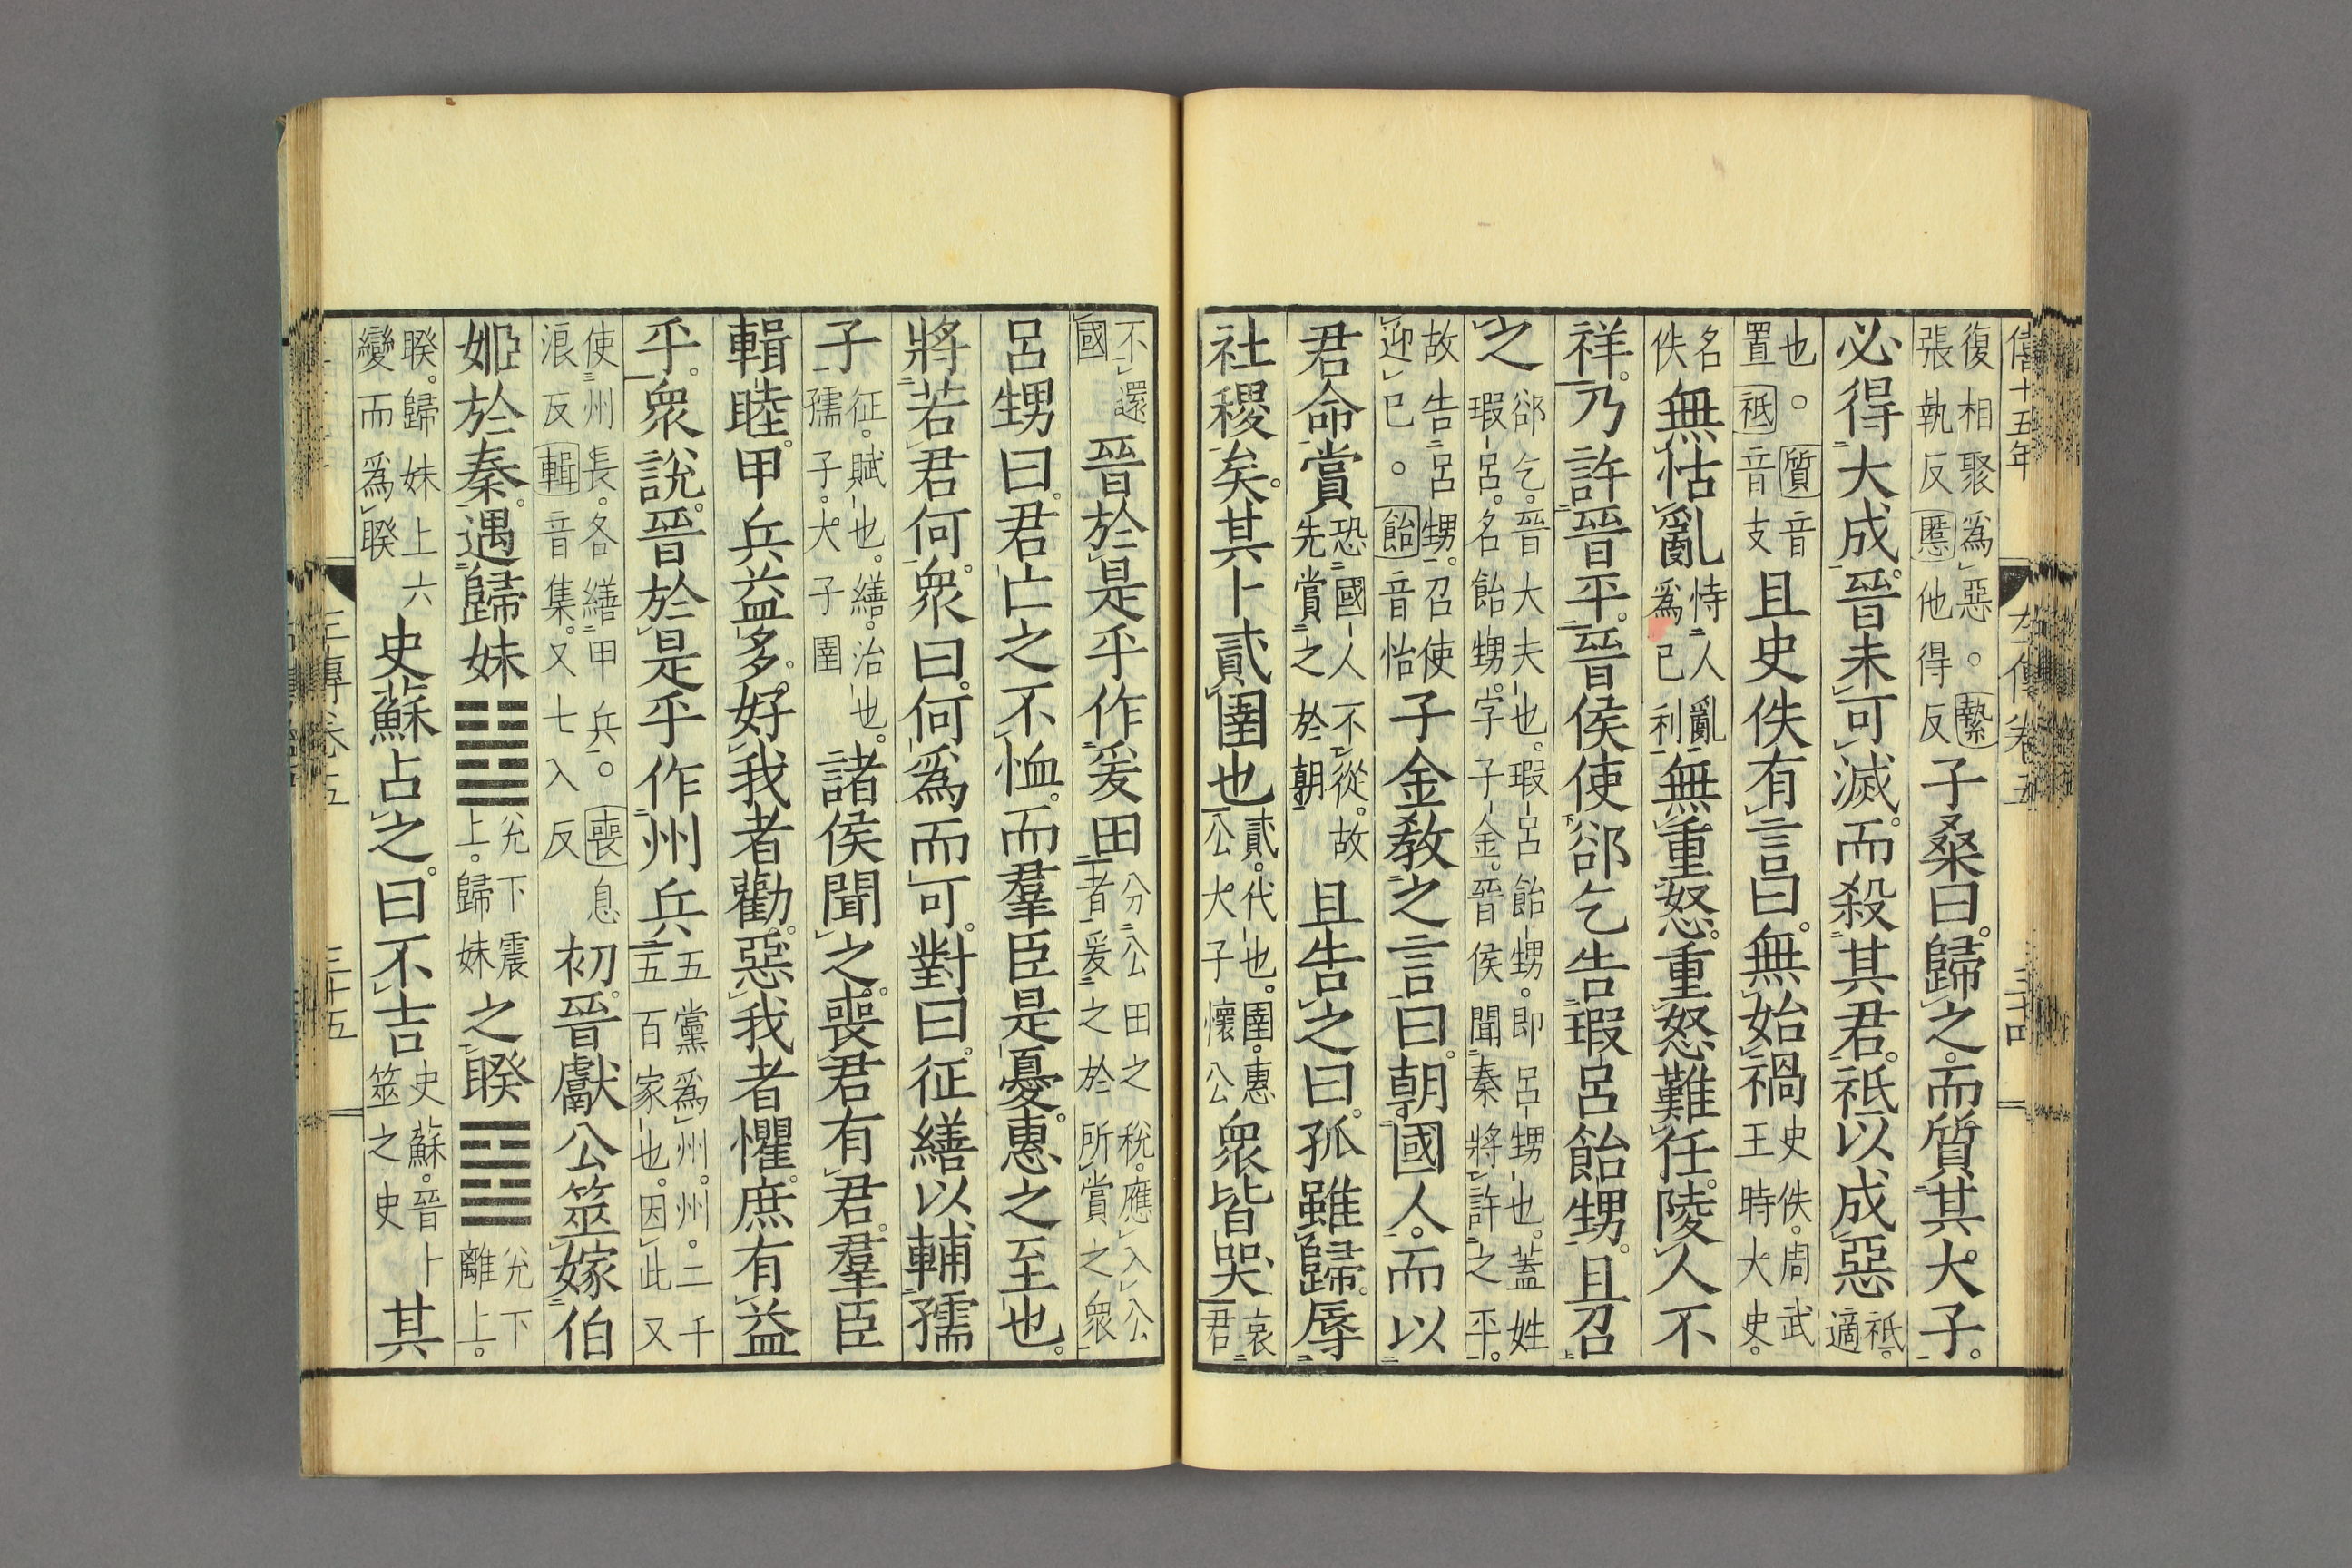 僖十五年
左傳卷五
三十四
復相聚爲惡。○縶
張執反慝他得反
子桑曰。歸之。而質其大子。
必得大成。晉未可滅。而殺其君。祗以成惡
祗。
適
也。○質音
置祗音支
且史佚有言曰。無始禍
史佚。周武
王時大史。
名
佚
無怙亂
恃人亂
爲己利
無重怒。重怒難任。陵人不
祥。乃許晉平。晉侯使郤乞告瑕呂飴甥。且召
之
郤乞。晉大夫也。瑕呂飴甥。即呂甥也。蓋姓
瑕呂。名飴甥。字子金。晉侯聞秦將許之平。
故告呂甥。召使
迎已。○飴音怡
子金教之言曰。朝國人。而以
君命賞
恐國人不從。故
先賞之於朝
且告之曰。孤雖歸。辱
社稷矣。其卜貳圉也
貳。代也。圉。惠
公大子懷公
衆皆哭
哀
君
不還
國
晉於是乎作爰田
分公田之稅。應入公
者。爰之於所賞之衆
呂甥曰。君亡之不恤。而羣臣是憂。惠之至也。
將若君何。衆曰。何爲而可。對曰。征繕以輔孺
子
征。賦也。繕。治也。
孺子。大子圉
諸侯聞之。喪君有君。羣臣
輯睦。甲兵益多。好我者勸。惡我者懼。庶有益
乎。衆說。晉於是乎作州兵
五黨爲州。州。二千
五百家也。因此又
使州長。各繕甲兵。○喪息
浪反輯音集。又七入反
初。晉獻公筮嫁伯
姬於秦。遇歸妹
兊下震
上。歸妹
之睽
兊下
離上。
睽。歸妹上六
變而爲睽
史蘇占之。曰不吉
史蘇。晉卜
筮之史
其
三十五